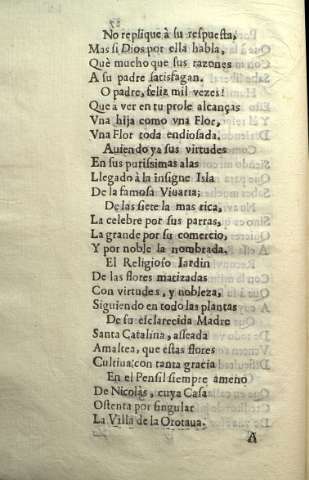 No replique à su respuesta,
Mas si Dios por ella habla,
Què mucho que sus razones
A su padre satisfagan.
O padre, feliz mil vezes!
Que à ver en tu prole alcanças
Vna hija como vna Flor,
Vna Flor toda endiosada.
Auiendo ya sus virtudes
En sus purissimas alas
Llegado à la insigne Isla
De la famosa Viuarta;
De las siete la mas rica,
La celebre por sus parras,
La grande por su comercio,
Y por noble la nombrada.
El Religioso Iardin
De las flores matizadas
Con virtudes, y nobleza,
Siguiendo en todo las plantas
De su esclarecida Madre
Santa Catalina, asseada
Amaltea, que estas flores
Cultiua con tanta gracia
En el Pensil siempre ameno
De Nicolàs, cuya Casa
Ostenta por singular
La Villa de la Orotaua.
A